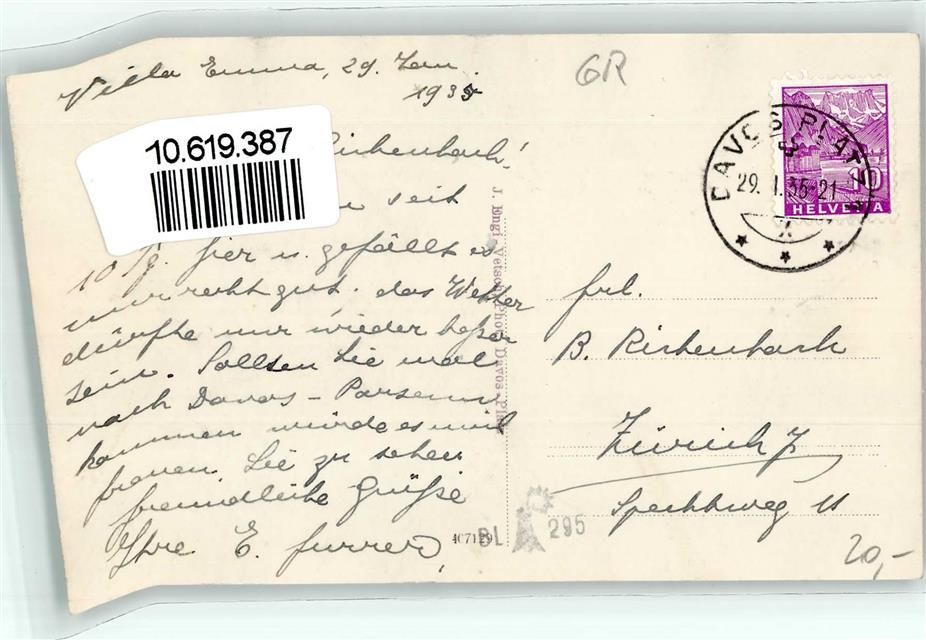 Villa Emma, 29. Jan.
1935
10.619.387
Richenbach!
seit
10 Tg. hier u. gefällt es
mir recht gut. das Wetter
dürfte nur wieder besser
sein. Sollten Sie mal
nach Davos-Parsenn
kommen würde es mich
freuen Sie zu sehen
freundliche Grüße
Ihre E. Furrer,
J. Engi Vetsch, Photo Davos-Platz
407129
BL 295
GR
DAVOS PLATZ
29. I. 35-21
10
HELVETIA
Frl.
B. Richenbach
Zürich 7
11
20,-